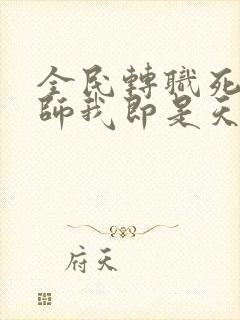 全民轉職死
師我即是天
府天